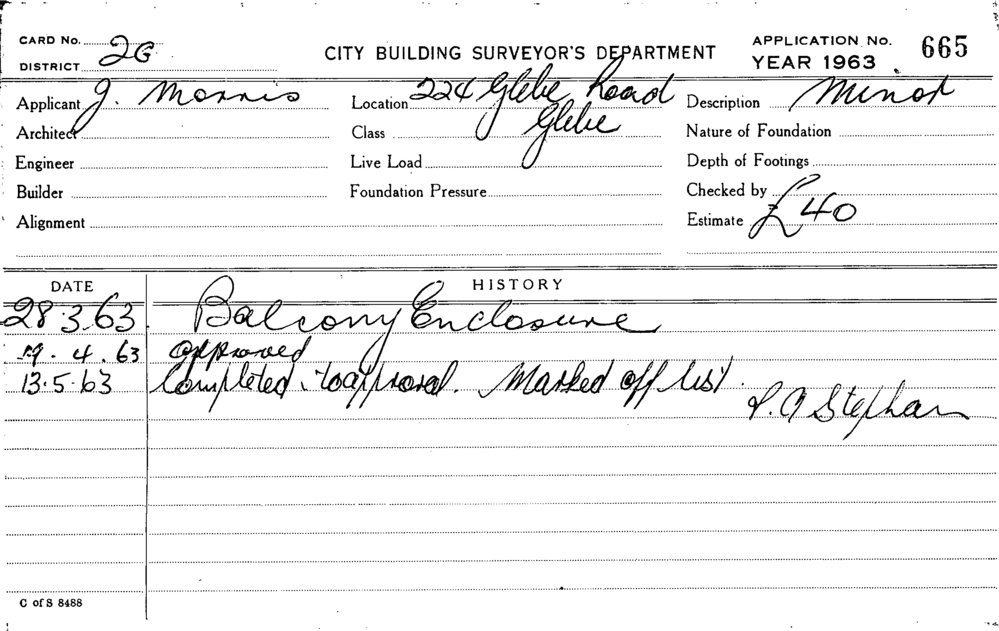 CARD No. 2G
DISTRICT
CITY BUILDING SURVEYOR'S DEPARTMENT
APPLICATION No. 665
YEAR 1963
Applicant J. Morris
Location 224 Glebe Road
Glebe
Description Minor
Architect
Class
Nature of Foundation
Engineer
Live Load
Depth of Footings
Builder
Foundation Pressure
Checked by
Alignment
Estimate £40
DATE HISTORY
28.3.63. Balcony Enclosure
19.4.63 approved
13.5.63 Completed to approval. Marked off list.
Stephan
C of S 8488